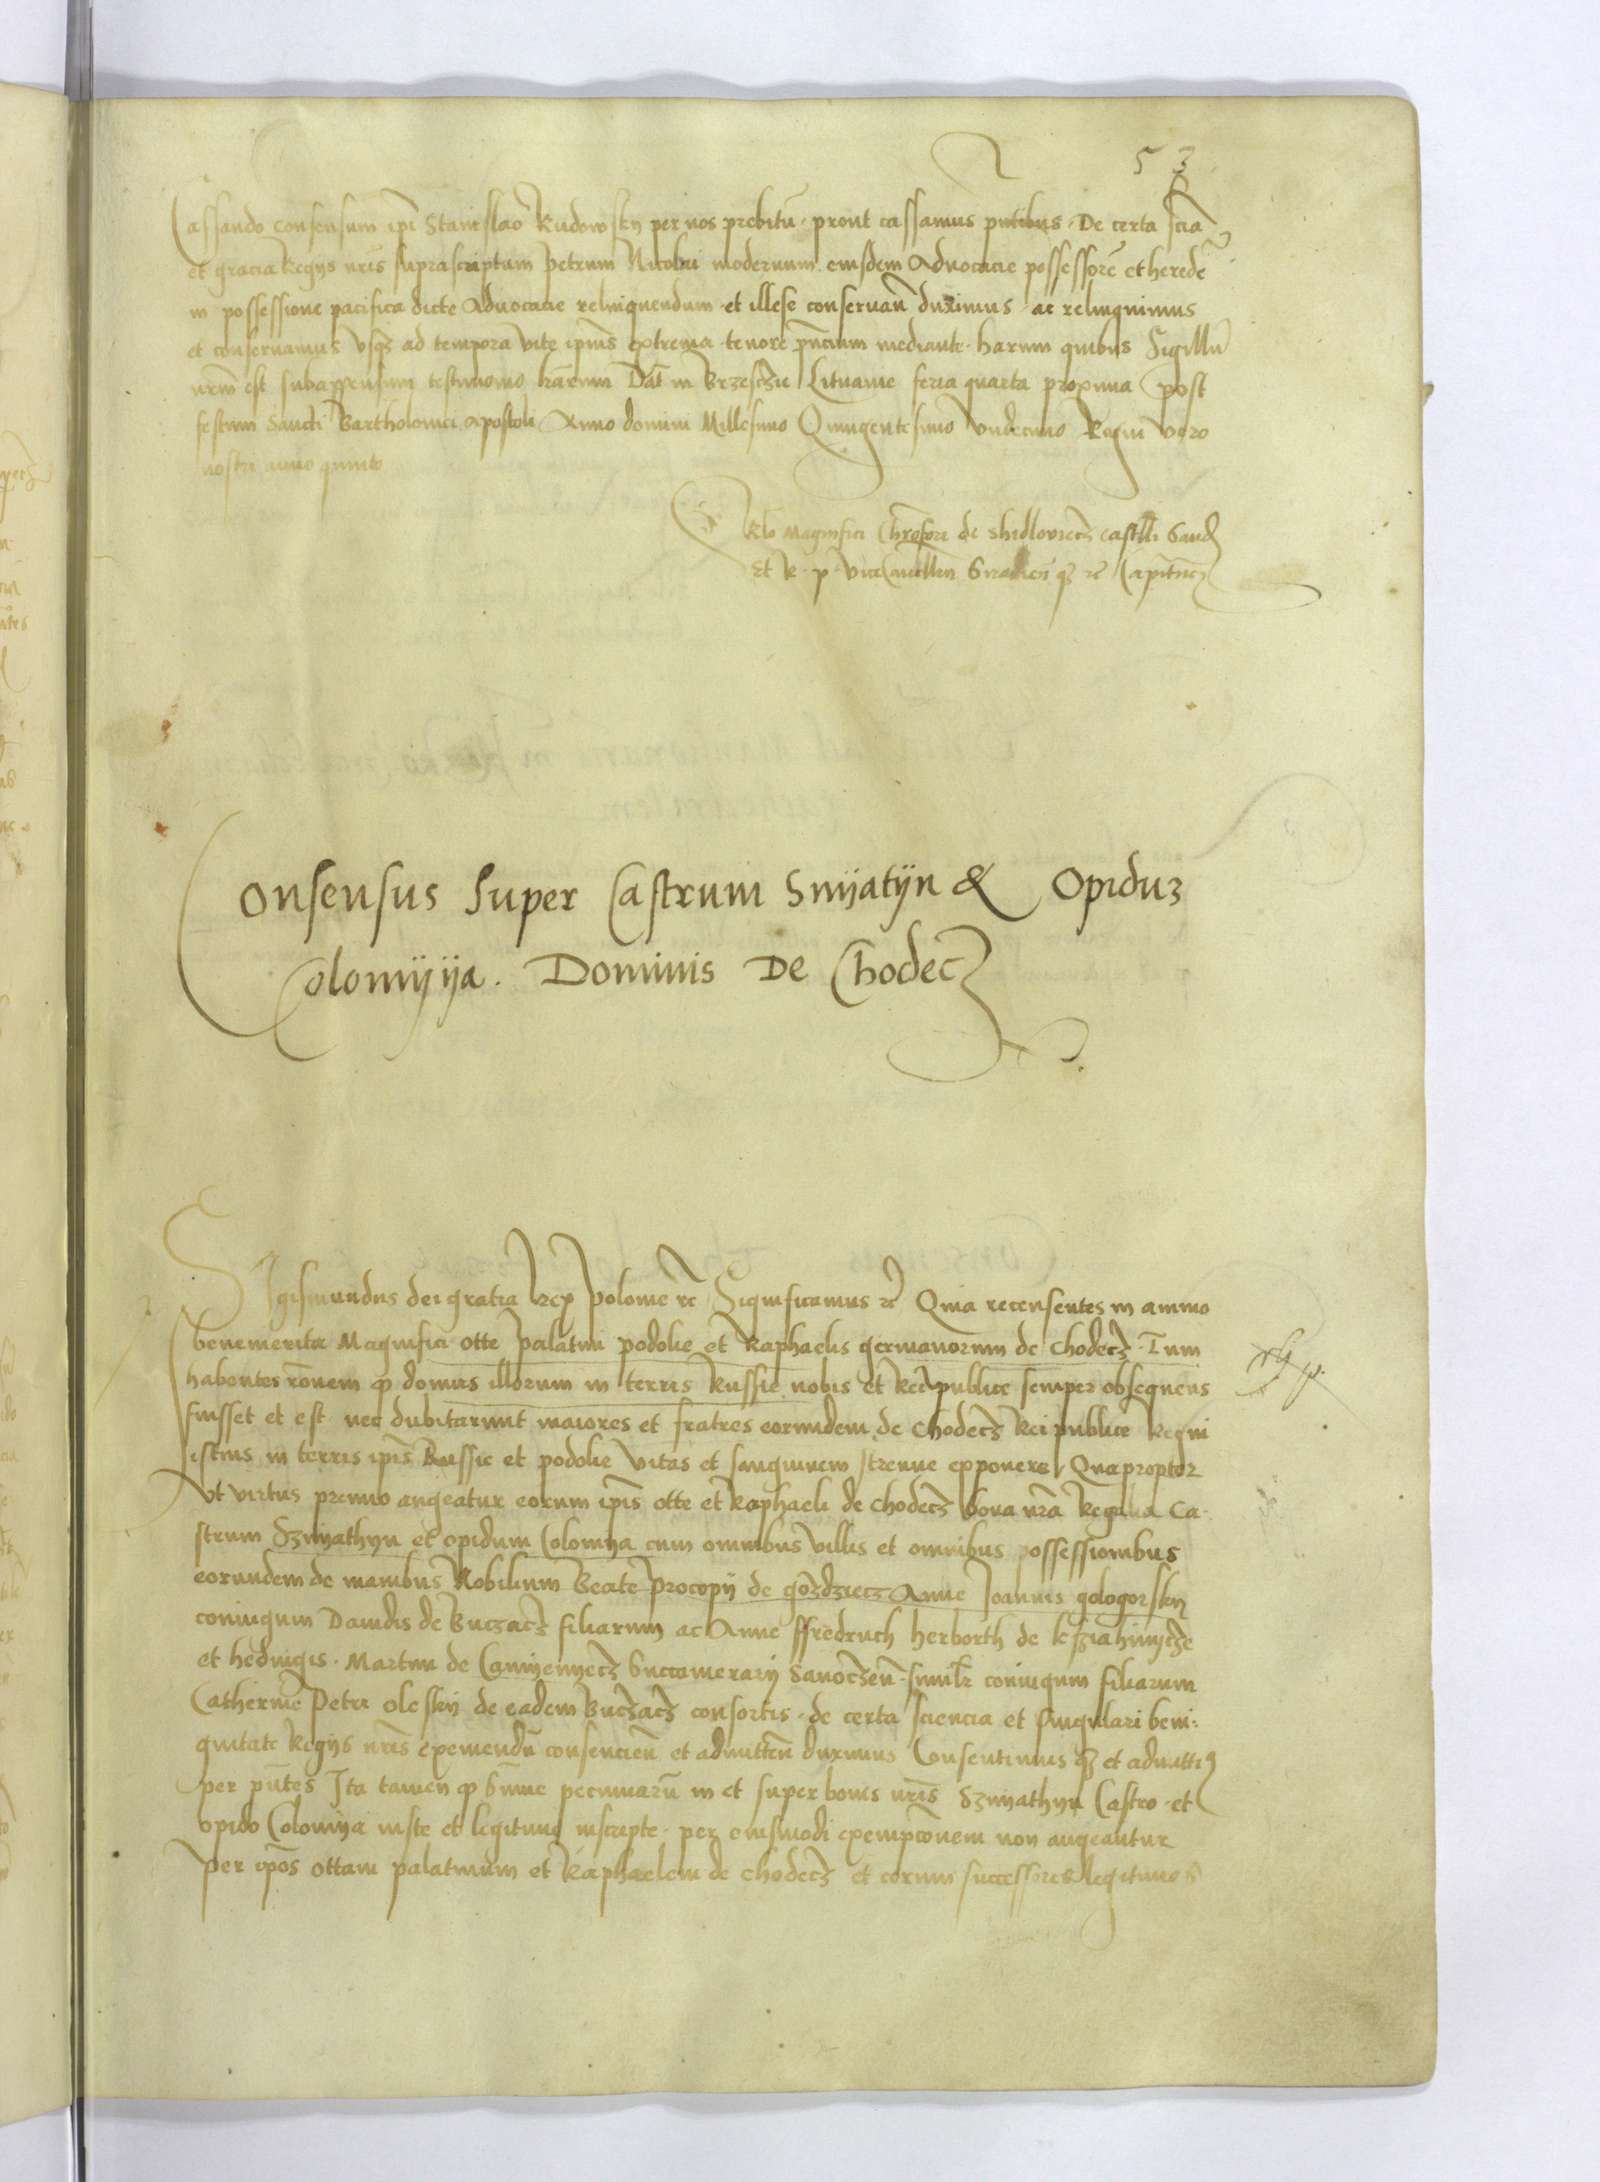 53
Cassando consensum ipi Stanislao Rudowsky per nos prebitū · prout cassamus pntibus · De certa scia
et gracia Regijs nris suprascriptum Petrum Nicolai modernum eiusdem Advocacie possessorē et heredē
in possessione pacifica dicte Advocacie relinquendum et illese conservan̄ duximus · ac relinquimus
et conservamus vsq3 ad tempora vite ipius extrema · tenore pn̄cium mediante · harum quibus Sigillū
nrm̄ est subappensum testimonio harum Dat̄ in Brzesczie Lituanie feria quarta proxima post
festum Sancti Bartholomei Apostoli Anno domini Millesimo Quingentesimo vndecimo Regni vero
nostri anno quinto
Rlo Magnifici Chrofori de Shidloviecz castlli Sand
Et R · p · vice Cancellarij Siradien̄ q3 rc̄ Capitnei
Consensus Super Castrum Snyatyn & Opidu3
Colomyya . Dominis De Chodecz
Sigismundus dei gratia Rex Polonie rc̄ Significamus rc̄ Quia recensentes in animo
benemerita Magnifici otte palatini podolie et Raphaelis germanorum de Chodecz · Tum
habentes rōnem q̄ domus illorum in terris Russie nobis et Reipublice semper obsequens
fuisset et est nec dubitarunt maiores et fratres eorundem de Chodecz Rei publice Regni
istius in terris ipis Russie et podolie vitas et sanguinem strenue exponere Quapropter
Vt virtus premio augeatur eorum ipis otte et Raphaeli de Chodecz bona nrā Regalia Ca-
strum Szniathyn et opidum Colomya cum omnibus villis et omnibus possessionibus
eorundem de manibus Nobilium Beate Procopij de gozdziecz Anne Joannis gologorsky
coniugum Dauidis de Buczacz filiarum ac Anne ffredruch herborth de
et hedwigis · Martini de Camyenyecz Succamerarij Sanoczen̄ · similr coniugum filiarum
Catherine Petri olesky de eadem Buczacz consortis · de certa sciencia et singulari beni-
gnitate Regijs nris exemendū consencien̄ et admitten̄ duximus Consentimus q3 et admittim9
per pn̄tes Ita tamen q̄ Sūme pecuniarū in et super bonis nris Szniathyn Castro · et
opido Colomya iuste et legitime inscripte · per eiusmodi exempcōnem non augeantur
Per ipōs ottam palatinum et Raphaelem de Chodecz et eorum successores legitimos